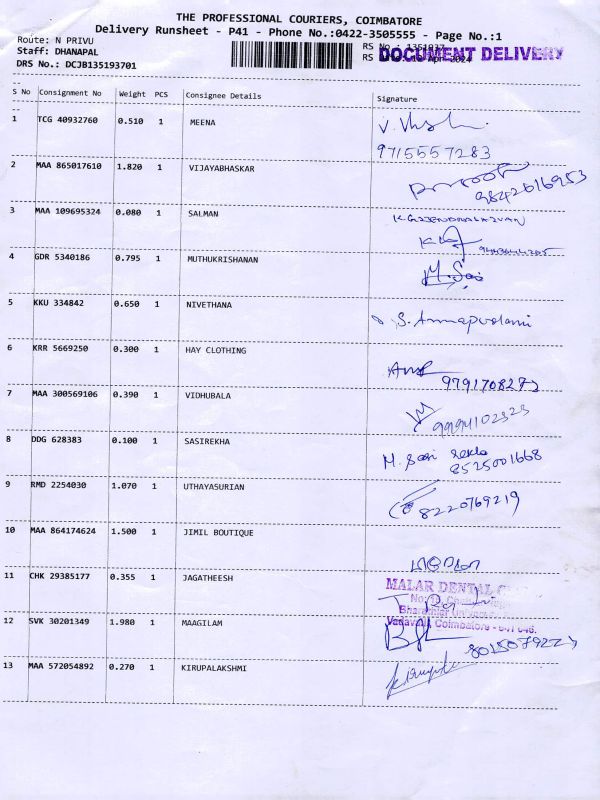 THE PROFESSIONAL COURIERS, COIMBATORE
Delivery Runsheet - P41 - Phone No.:0422-3505555 - Page No.:1
Route: N PRIVU
Staff: DHANAPAL
DRS No.: DCJB135193701
RS No.: 1351937
RS Apr 2024
DOCUMENT DELIVERY
S No Consignment No Weight PCS Consignee Details Signature
1 TCG 40932760 0.510 1 MEENA
9715557283
2 MAA 865017610 1.820 1 VIJAYABHASKAR
9842616953
3 MAA 109695324 0.080 1 SALMAN
4 GDR 5340186 0.795 1 MUTHUKRISHANAN M. Sasi
5 KKU 334842 0.650 1 NIVETHANA S. Annapoorani
6 KRR 5669250 0.300 1 HAY CLOTHING
7 MAA 300569106 0.390 1 VIDHUBALA
9994102323
8 DDG 628383 0.100 1 SASIREKHA M. Sasi rekha
8525001668
9 RMD 2254030 1.070 1 UTHAYASURIAN 8220769219
10 MAA 864174624 1.500 1 JIMIL BOUTIQUE
11 CHK 29385177 0.355 1 JAGATHEESH
MALAR DENTAL
Bharathiar
12 SVK 30201349 1.980 1 MAAGILAM
Vadavalli, Coimbatore - 641 046.
13 MAA 572054892 0.270 1 KIRUPALAKSHMI